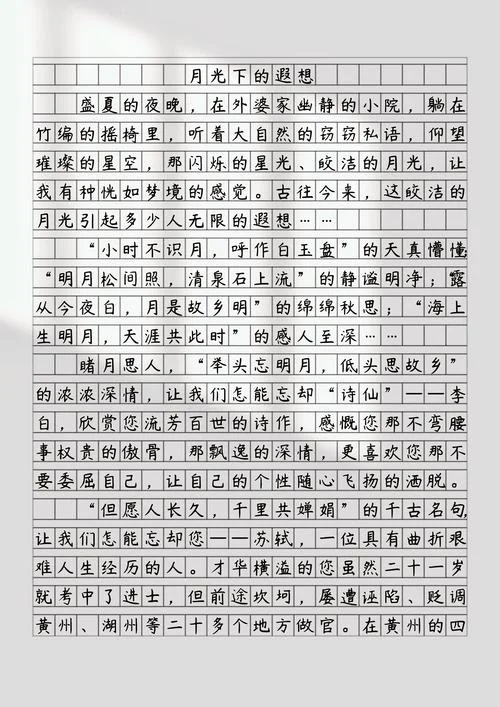 月光下的遐想
盛夏的夜晚，在外婆家幽静的小院，躺在
竹编的摇椅里，听着大自然的窃窃私语，仰望
璀璨的星空，那闪烁的星光、皎洁的月光，让
我有种恍如梦境的感觉。古往今来，这皎洁的
月光引起多少人无限的遐想……
“小时不识月，呼作白玉盘”的天真懵懂；
“明月松间照，清泉石上流”的静谧明净；“露
从今夜白，月是故乡明”的绵绵秋思；“海上
生明月，天涯共此时”的感人至深……
睹月思人，“举头忘明月，低头思故乡”
的浓浓深情，让我们怎能忘却“诗仙”——李
白，欣赏您流芳百世的诗作，感慨您那不弯腰
事权贵的傲骨，那飘逸的深情，更喜欢您那不
要委屈自己，让自己的个性随心飞扬的洒脱。
“但愿人长久，千里共婵娟”的千古名句，
让我们怎能忘却您——苏轼，一位具有曲折艰
难人生经历的人。才华横溢的您虽然二十一岁
就考中了进士，但前途坎坷，屡遭诬陷、贬调
黄州、湖州等二十多个地方做官。在黄州的四